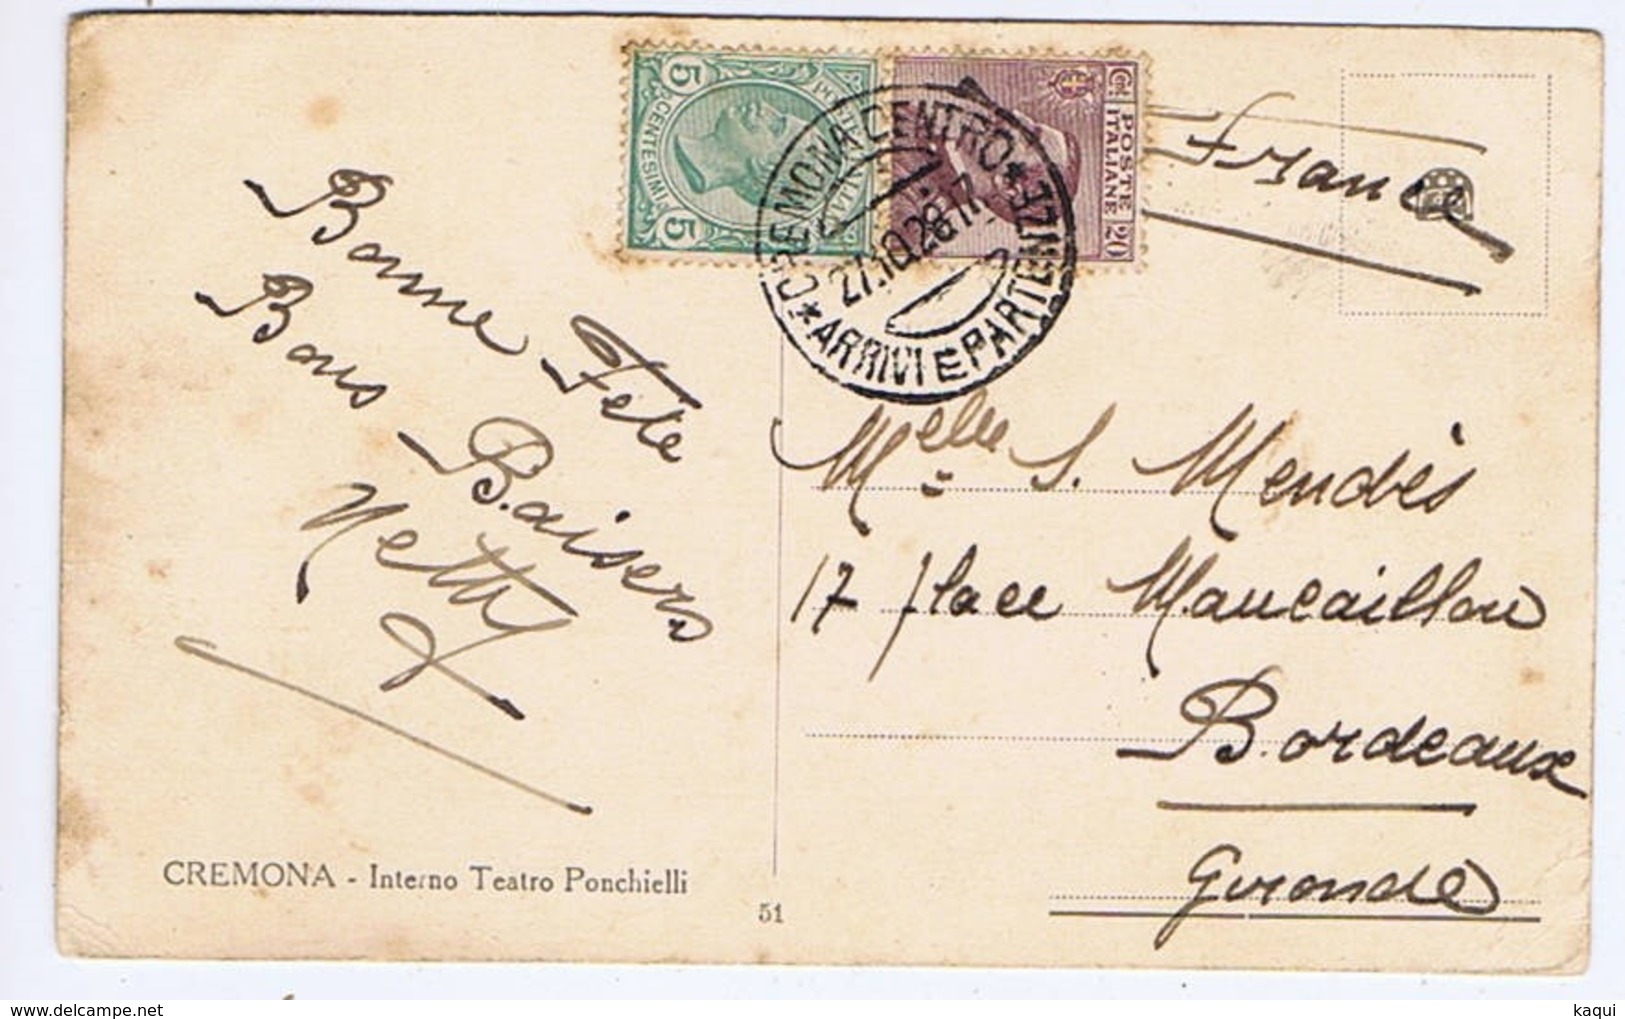 5 CENTESIMI 5
POSTE ITALIANE
Cent. 20
CREMONA CENTRO * ARRIVI E PARTENZE *
27.10.28.17
France
Bonne Fête
Bons Baisers
Netty
Melle S. Mendès
17 place Maucaillou
Bordeaux
Gironde
CREMONA - Interno Teatro Ponchielli
51
kaqui